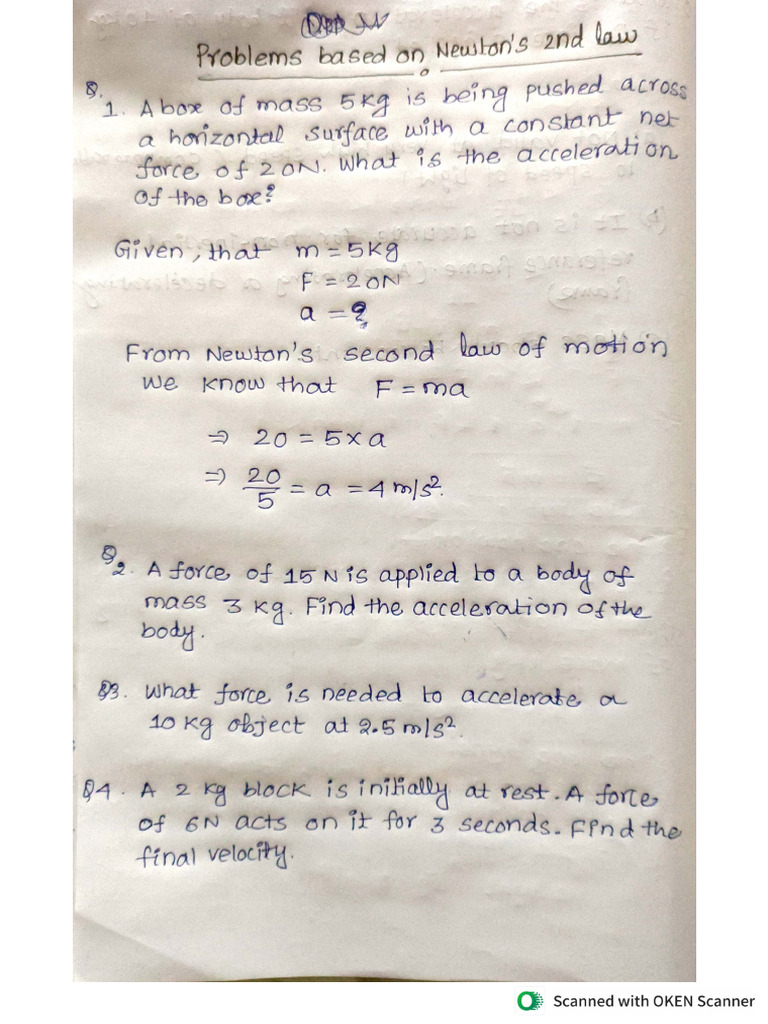 Problems based on Newton's 2nd law
Q.
1. A box of mass 5kg is being pushed across
a horizontal surface with a constant net
force of 20N. What is the acceleration
of the box?
Given, that m = 5kg
F = 20N
a = ?
From Newton's second law of motion
we know that F = ma
⇒ 20 = 5 x a
⇒ 20/5 = a = 4 m/s².
Q2. A force of 15 N is applied to a body of
mass 3 kg. Find the acceleration of the
body.
Q3. What force is needed to accelerate a
10 kg object at 2.5 m/s².
Q4. A 2 kg block is initially at rest. A force
of 6N acts on it for 3 seconds. Find the
final velocity.
Scanned with OKEN Scanner